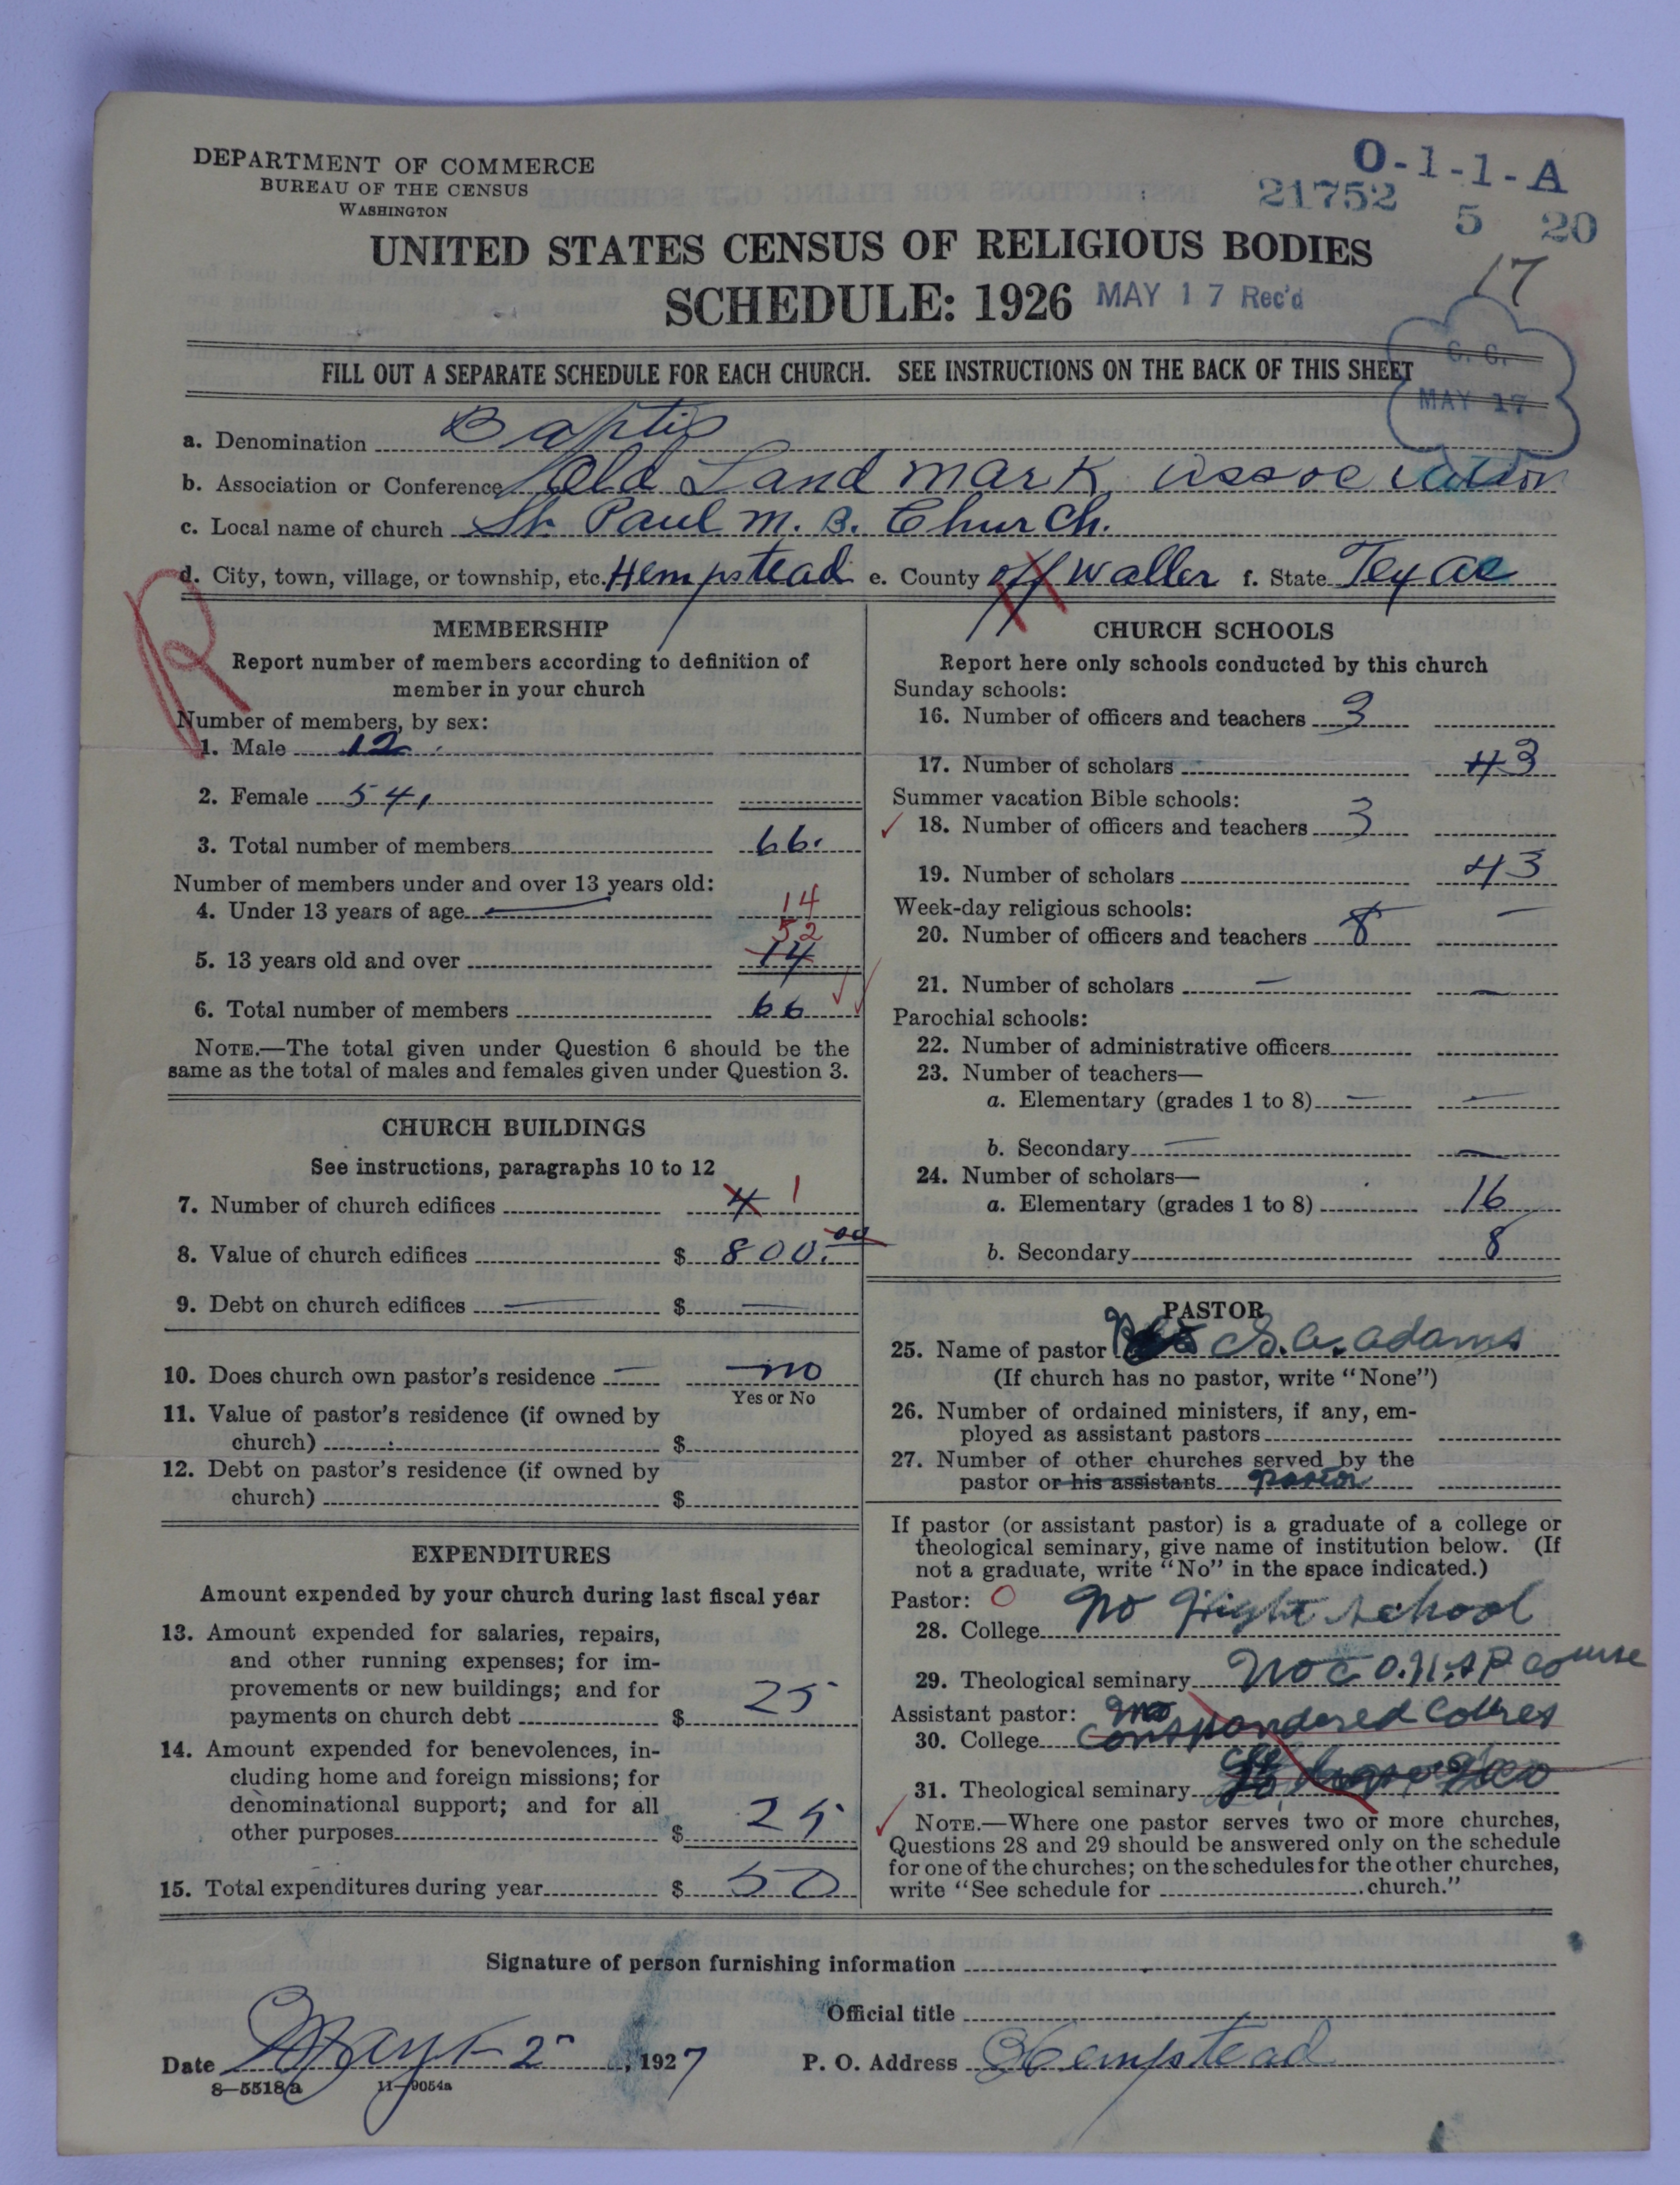 DEPARTMENT OF COMMERCE
BUREAU OF THE CENSUS
WASHINGTON
O-1-1-A
21752
5 20
17
UNITED STATES CENSUS OF RELIGIOUS BODIES
SCHEDULE: 1926
MAY 17 Rec'd
C. C.
MAY 17
FILL OUT A SEPARATE SCHEDULE FOR EACH CHURCH. SEE INSTRUCTIONS ON THE BACK OF THIS SHEET
a. Denomination Baptis
b. Association or Conference Old Land mark association
c. Local name of church St. Paul M. B. Church.
d. City, town, village, or township, etc. Hempstead e. County off Waller f. State Texas
R
MEMBERSHIP
Report number of members according to definition of
member in your church
Number of members, by sex:
1. Male 12
2. Female 54
3. Total number of members 66.
Number of members under and over 13 years old:
4. Under 13 years of age 14
52
5. 13 years old and over 14
6. Total number of members 66
NOTE.—The total given under Question 6 should be the
same as the total of males and females given under Question 3.
CHURCH BUILDINGS
See instructions, paragraphs 10 to 12
7. Number of church edifices 4 1
8. Value of church edifices $ 800.00
9. Debt on church edifices $
10. Does church own pastor's residence no
Yes or No
11. Value of pastor's residence (if owned by
church) $
12. Debt on pastor's residence (if owned by
church) $
EXPENDITURES
Amount expended by your church during last fiscal year
13. Amount expended for salaries, repairs,
and other running expenses; for im-
provements or new buildings; and for
payments on church debt $ 25
14. Amount expended for benevolences, in-
cluding home and foreign missions; for
denominational support; and for all
other purposes $ 25
15. Total expenditures during year $ 50
CHURCH SCHOOLS
Report here only schools conducted by this church
Sunday schools:
16. Number of officers and teachers 3
17. Number of scholars 43
Summer vacation Bible schools:
18. Number of officers and teachers 3
19. Number of scholars 43
Week-day religious schools:
20. Number of officers and teachers 8
21. Number of scholars
Parochial schools:
22. Number of administrative officers
23. Number of teachers—
a. Elementary (grades 1 to 8)
b. Secondary
24. Number of scholars—
a. Elementary (grades 1 to 8) 16
b. Secondary 8
PASTOR
25. Name of pastor S. A. Adams
(If church has no pastor, write "None")
26. Number of ordained ministers, if any, em-
ployed as assistant pastors
27. Number of other churches served by the
pastor or his assistants pastor
If pastor (or assistant pastor) is a graduate of a college or
theological seminary, give name of institution below. (If
not a graduate, write "No" in the space indicated.)
Pastor: O
28. College no Hight school
29. Theological seminary No course
Assistant pastor: no
30. College
31. Theological seminary
NOTE.—Where one pastor serves two or more churches,
Questions 28 and 29 should be answered only on the schedule
for one of the churches; on the schedules for the other churches,
write "See schedule for church."
Signature of person furnishing information
Official title
Date May 2, 1927 P. O. Address Hempstead
8—5518a 11—9054a